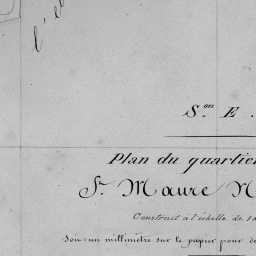 l'e
S.on E.
Plan du quartier
St. Maure N
Construit à l'échelle de 1 à
Son: un millimètre sur le papier pour de